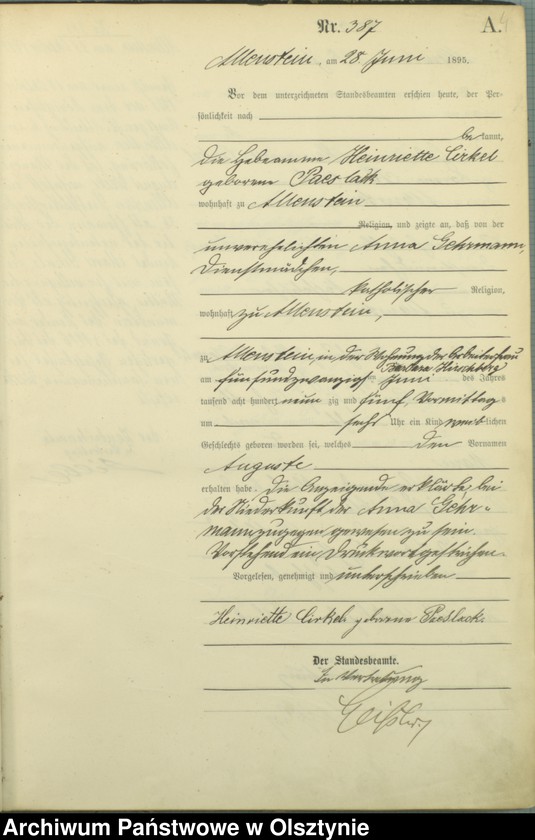 Nr. 387
A.
Allenstein, am 28 Juni 1895.
Vor dem unterzeichneten Standesbeamten erschien heute, der Per-
sönlichkeit nach
be kannt,
die Hebeamme Heinriette Cirkel
geborene Paeslack
wohnhaft zu Allenstein
Religion, und zeigte an, daß von der
unverehelichten Anna Gehrmann,
Dienstmädchen,
katholischer Religion,
wohnhaft zu Allenstein,
zu Allenstein, in der Wohnung der Arbeiterfrau
Barbara Hirschberg
am fünfundzwanzigsten Juni des Jahres
tausend acht hundert neun zig und fünf, Vormittags
um sechs Uhr ein Kind weiblichen
Geschlechts geboren worden sei, welches den Vornamen
Auguste
erhalten habe. Die Anzeigende erklärte, bei
der Niederkunft der Anna Gehr-
mann zugegen gewesen zu sein.
Vorstehend ein Druckwort gestrichen.
Vorgelesen, genehmigt und unterschrieben
Heinriette Cirkel geborene Paeslack.
Der Standesbeamte.
In Vertretung
Archiwum Państwowe w Olsztynie